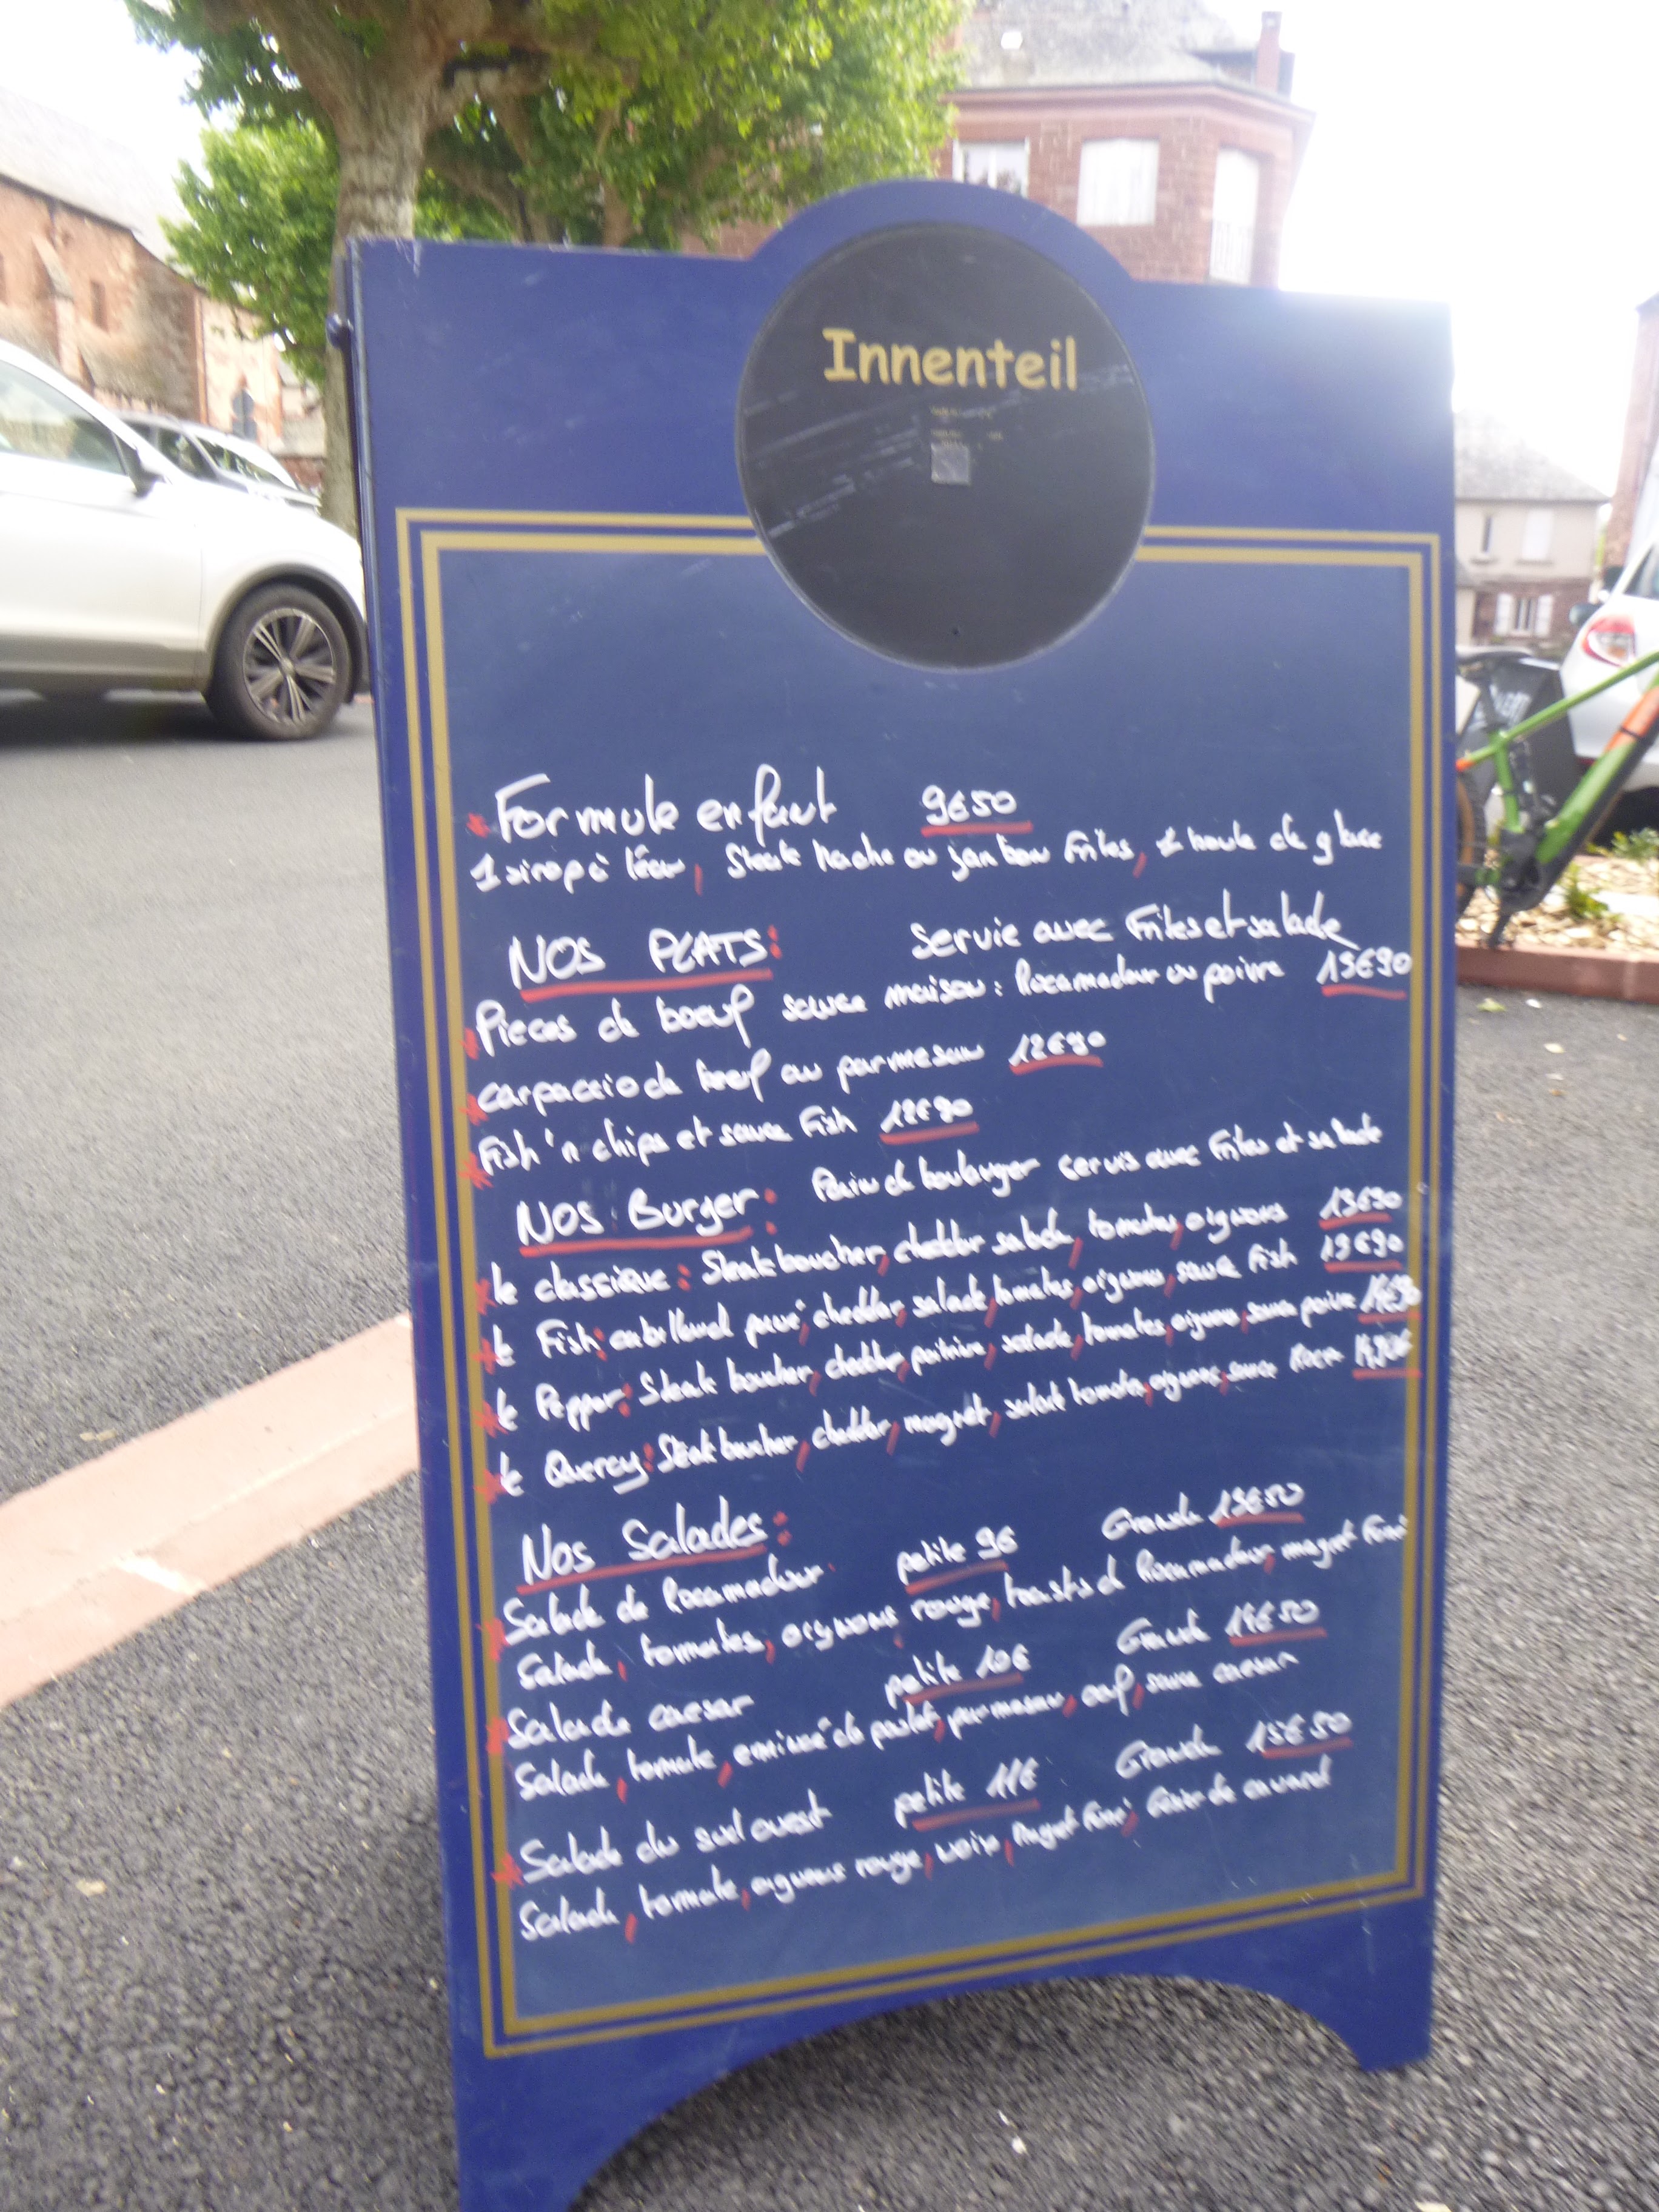 Innenteil
Formule enfant 9€50
1 sirop à l'eau, Steak hache ou jambon Frites, 1 boule de glace
NOS PLATS: Servie avec Frites et salade
Pieces de boeuf sauce maison: Rocamadour ou poivre 15€90
carpaccio de boeuf au parmesan 12€90
Fish'n chips et sauce Fish 12€90
NOS Burger: Pain de boulanger servis avec Frites et salade
le classique: Steak boucher, cheddar salade, tomates, oignons 13€90
le Fish: cabillaud pané, cheddar, salade, tomates, oignons, sauce Fish 13€90
le Pepper: Steak boucher, cheddar, poitrine, salade, tomates, oignons, sauce poivre
le Quercy: Steak boucher, cheddar, magret, salade tomates, oignons, sauce Roca 14,90€
Nos Salades:
Salade de Rocamadour petite 9€ Grande 13€50
Salade, tomates, oignons rouge, toasts de Rocamadour, magret Fumé
Salade caesar petite 10€ Grande 14€50
Salade, tomate, emincé de poulet, parmesan, oeuf, sauce caesar
Salade du sud ouest petite 11€ Grande 15€50
Salade, tomate, oignons rouge, noix, Magret Fumé, Gésier de canard